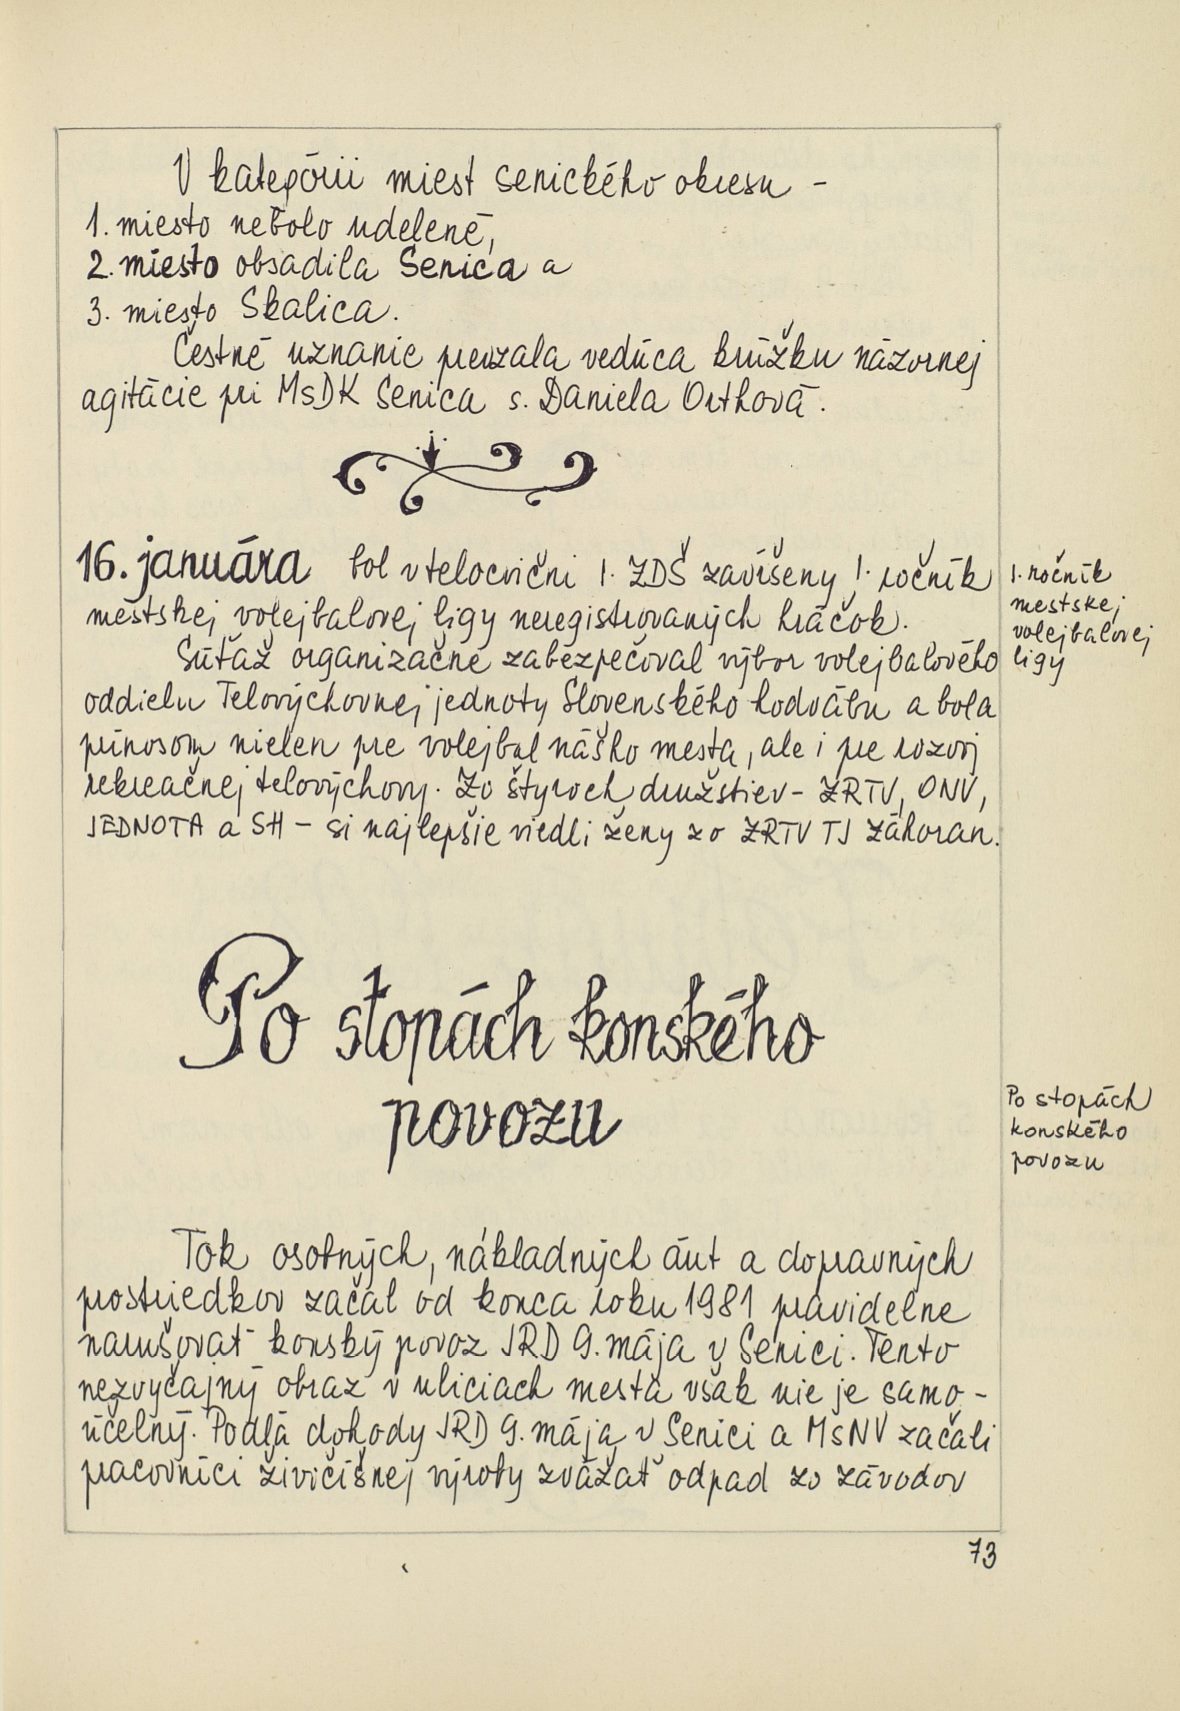 V kategórii miest senického okresu -
1. miesto nebolo udelené,
2. miesto obsadila Senica a
3. miesto Skalica.
Čestné uznanie prevzala vedúca krúžku názornej
agitácie pri MsDK Senica s. Daniela Orthová.
16. januára bol v telocvični I. ZDŠ zavŕšený 1. ročník
mestskej volejbalovej ligy neregistrovaných hráčok.
Súťaž organizačne zabezpečoval výbor volejbalového
oddielu Telovýchovnej jednoty Slovenského hodvábu a bola
prínosom nielen pre volejbal nášho mesta, ale i pre rozvoj
rekreačnej telovýchovy. Zo štyroch družstiev - ZRTV, ONV,
JEDNOTA a SH - si najlepšie viedli ženy zo ZRTV TJ Záhoran.
1. ročník
mestskej
volejbalovej
ligy
Po stopách konského
povozu
Po stopách
konského
povozu
Tok osobných, nákladných áut a dopravných
prostriedkov začal od konca roku 1981 pravidelne
narušovať konský povoz JRD 9. mája v Senici. Tento
nezvyčajný obraz v uliciach mesta však nie je samo-
účelný. Podľa dohody JRD 9. mája v Senici a MsNV začali
pracovníci živičíšnej výroby zvážať odpad zo závodov
73